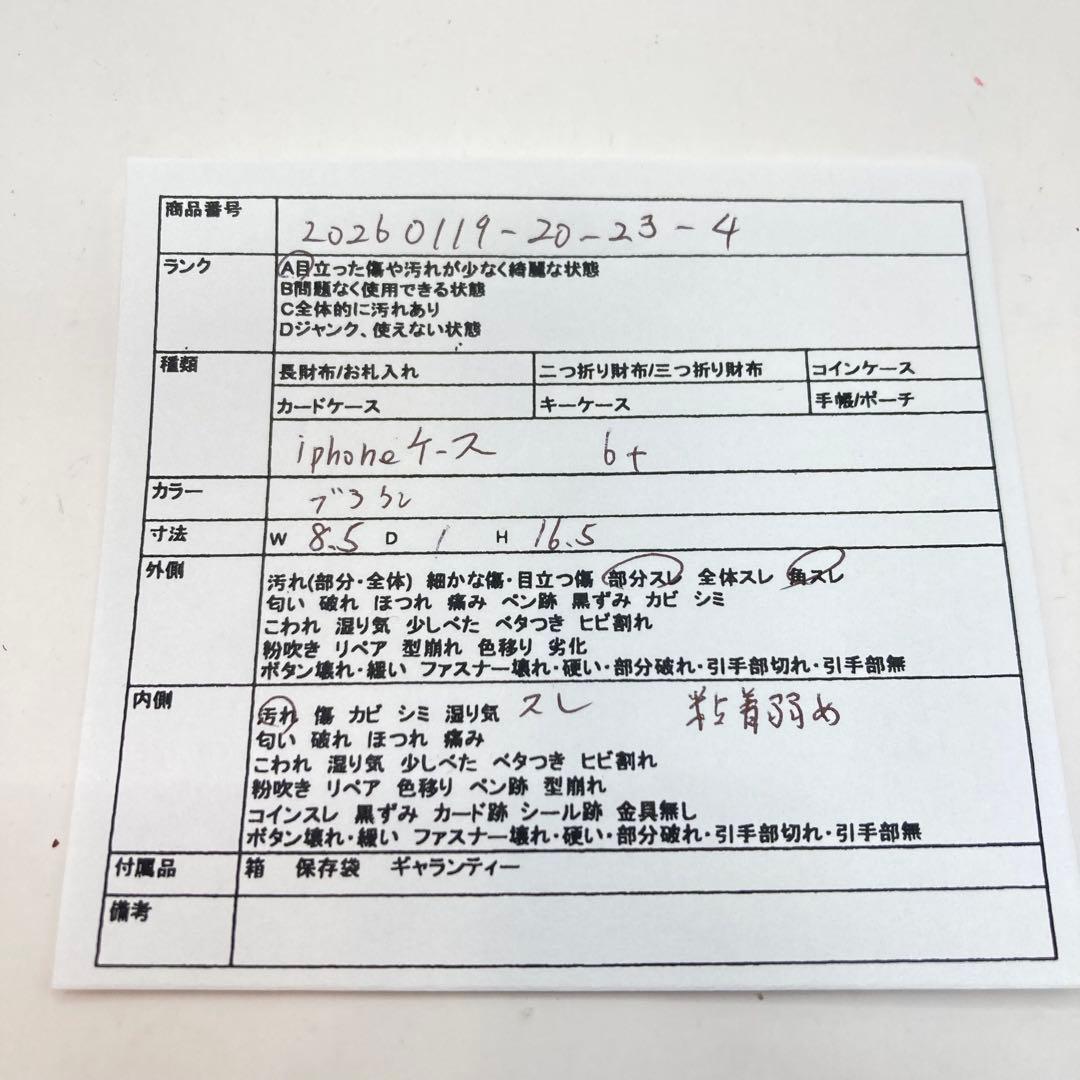 商品番号 20260119-20-23-4
ランク A目立った傷や汚れが少なく綺麗な状態
B問題なく使用できる状態
C全体的に汚れあり
Dジャンク、使えない状態
種類 長財布/お札入れ 二つ折り財布/三つ折り財布 コインケース
カードケース キーケース 手帳/ポーチ
iphoneケース 6+
カラー ブラウン
寸法 W 8.5 D 1 H 16.5
外側 汚れ(部分・全体) 細かな傷・目立つ傷 部分スレ 全体スレ 角スレ
匂い 破れ ほつれ 痛み ペン跡 黒ずみ カビ シミ
こわれ 湿り気 少しべた ベタつき ヒビ割れ
粉吹き リペア 型崩れ 色移り 劣化
ボタン壊れ・緩い ファスナー壊れ・硬い・部分破れ・引手部切れ・引手部無
内側 汚れ 傷 カビ シミ 湿り気 スレ 粘着弱め
匂い 破れ ほつれ 痛み
こわれ 湿り気 少しべた ベタつき ヒビ割れ
粉吹き リペア 色移り ペン跡 型崩れ
コインスレ 黒ずみ カード跡 シール跡 金具無し
ボタン壊れ・緩い ファスナー壊れ・硬い・部分破れ・引手部切れ・引手部無
付属品 箱 保存袋 ギャランティー
備考